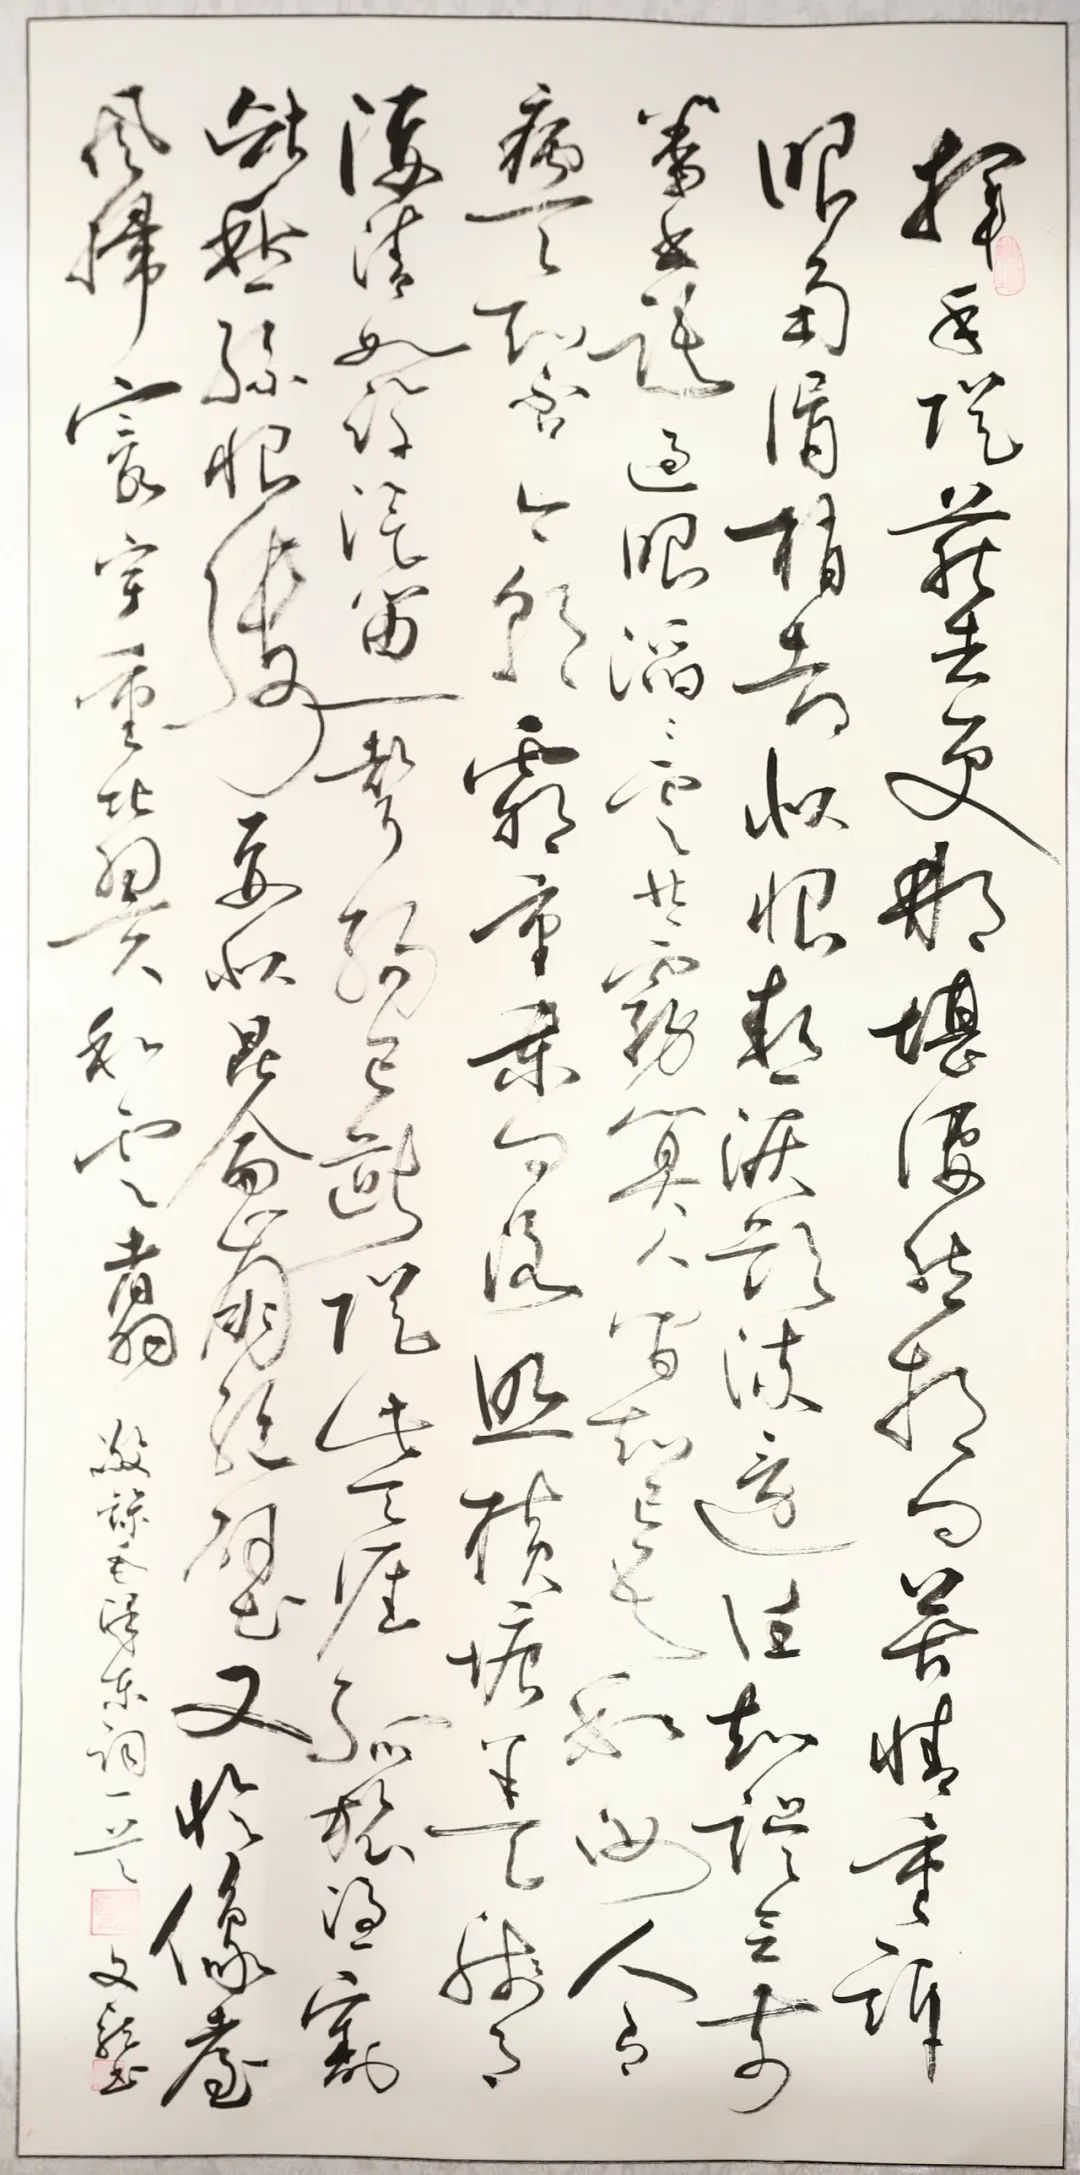 揮手從茲去更那堪淒然相向苦情重訴
眼角眉梢都似恨熱淚欲零還住知誤會前
番書語過眼滔滔雲共霧算人間知己吾和汝人有
病天知否今朝霜重東門路照橫塘半天殘月
淒清如許汽笛一聲腸已斷從此天涯孤旅憑割
斷愁絲恨縷要似昆侖崩絕壁又恰像臺
風掃寰宇重比翼和雲翥
敬錄毛澤東詞一首
文龍